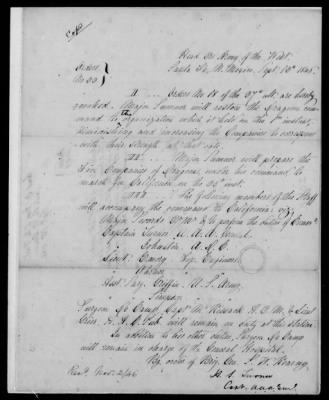 Copy
Head Qrs Army of the West.
Santa Fe, N. Mexico, Sept. 15th 1846.
Orders
No 30
II ... Orders No 18 of the 27th ult. are hereby
revoked. Major Sumner will restore the Dragoon com-
mand to the organization which it held on the 1st instant,
diminishing and increasing the Companies to correspond
with their strength at that date.
Major Sumner will prepare the
Five Companies of Dragoons, under his command to
march for California on the 25th inst.
III ... The following members of the Staff
will accompany the command to California, viz
Major Swords
Captain Turner A. A. A. Genl.
" Johnston A. D. C.
Lieut. Emory Top. Engineers
" Warner
Asst. Surg. Griffin U. S. Army
" Simpson
Surgeon De Camp, Capt McKissack A. Q. M. & Lieut
will remain on duty at this station.
In addition to his other duties, Surgeon De Camp
will remain in charge of the General Hospital.
By order of Brig. Gen. S. W. Kearny,
H. S. Turner
Capt. A.A.A. Genl
Recd. Nov. 21/46